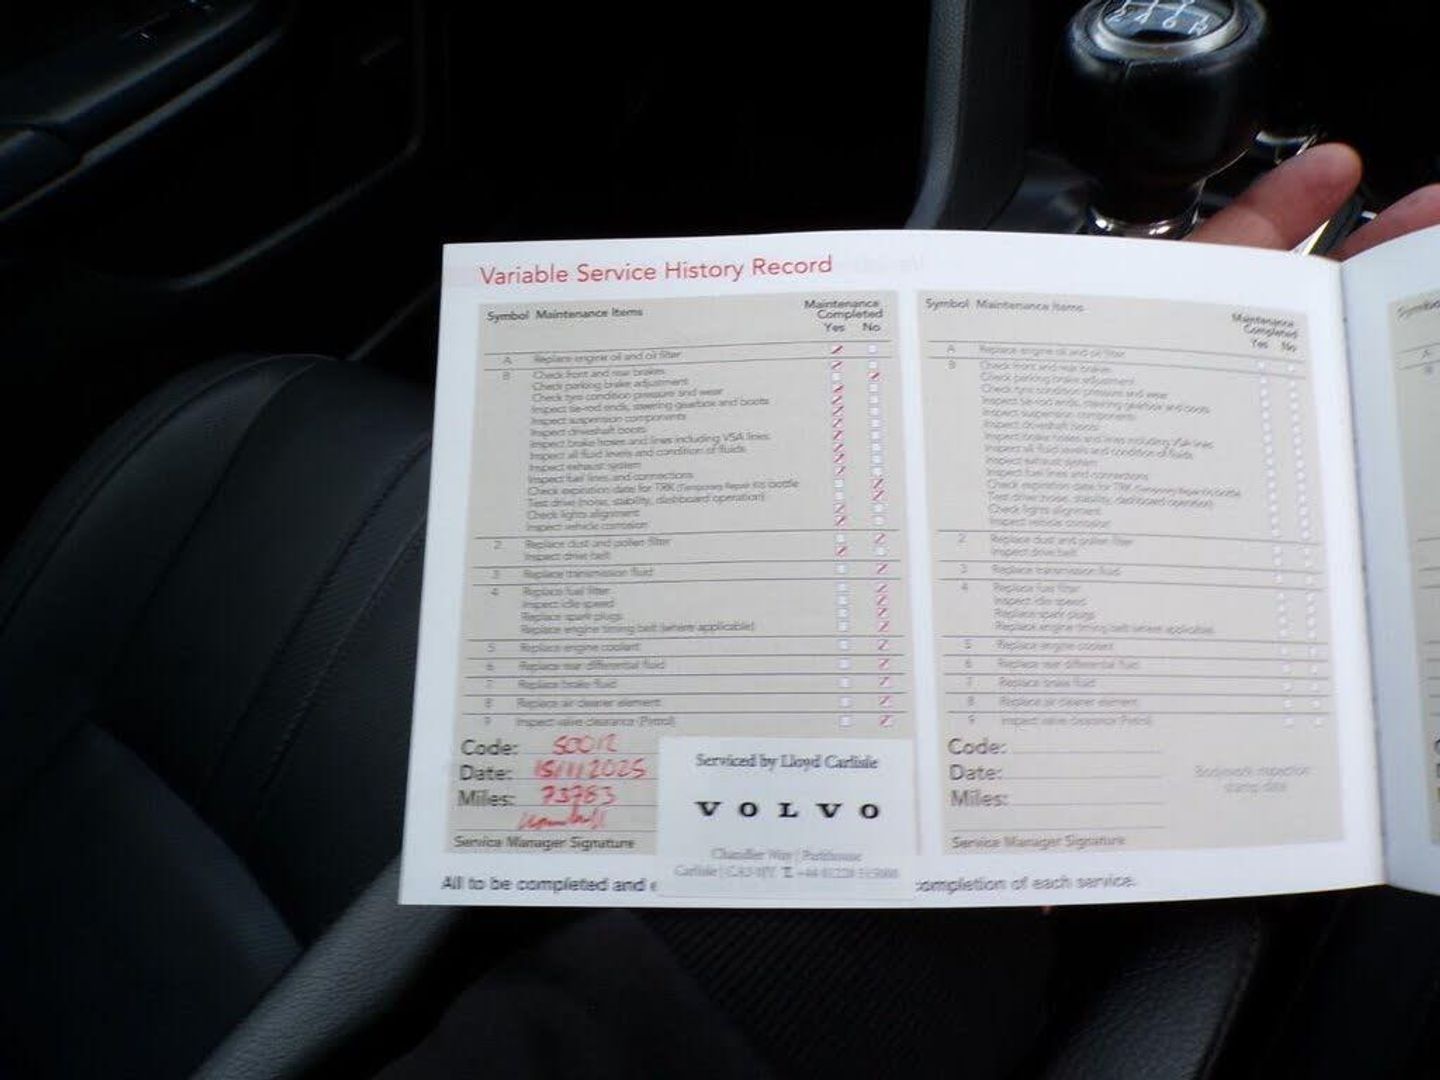 Variable Service History Record
Symbol Maintenance Items Maintenance Completed Yes No
A Replace engine oil and oil filter
B Check front and rear brakes
Check parking brake adjustment
Check tyre condition pressure and wear
Inspect tie-rod ends, steering gearbox and boots
Inspect suspension components
Inspect driveshaft boots
Inspect brake hoses and lines including VSA lines
Inspect all fluid levels and condition of fluids
Inspect exhaust system
Inspect fuel lines and connections
Check expiration date for TRK (Temporary Repair Kit) bottle
Test drive (noise, stability, dashboard operation)
Check lights alignment
Inspect vehicle corrosion
2 Replace dust and pollen filter
Inspect drive belt
3 Replace transmission fluid
4 Replace fuel filter
Inspect idle speed
Replace spark plugs
Replace engine timing belt (where applicable)
5 Replace engine coolant
6 Replace rear differential fluid
7 Replace brake fluid
8 Replace air cleaner element
9 Inspect valve clearance (Petrol)
Code: 50012
Date: 15/11/2025
Miles: 73783
Service Manager Signature
Serviced by Lloyd Carlisle
VOLVO
Chandler Way | Parkhouse
Carlisle
All to be completed and
completion of each service.
Symbol Maintenance Items Maintenance Completed Yes No
A Replace engine oil and oil filter
B Check front and rear brakes
Check parking brake adjustment
Check tyre condition pressure and wear
Inspect tie-rod ends, steering gearbox and boots
Inspect suspension components
Inspect driveshaft boots
Inspect brake hoses and lines including VSA lines
Inspect all fluid levels and condition of fluids
Inspect exhaust system
Inspect fuel lines and connections
Check expiration date for TRK (Temporary Repair Kit) bottle
Test drive (noise, stability, dashboard operation)
Check lights alignment
Inspect vehicle corrosion
2 Replace dust and pollen filter
Inspect drive belt
3 Replace transmission fluid
4 Replace fuel filter
Inspect idle speed
Replace spark plugs
Replace engine timing belt (where applicable)
5 Replace engine coolant
6 Replace rear differential fluid
7 Replace brake fluid
8 Replace air cleaner element
9 Inspect valve clearance (Petrol)
Code:
Date:
Miles:
Bodywork inspection
Service Manager Signature